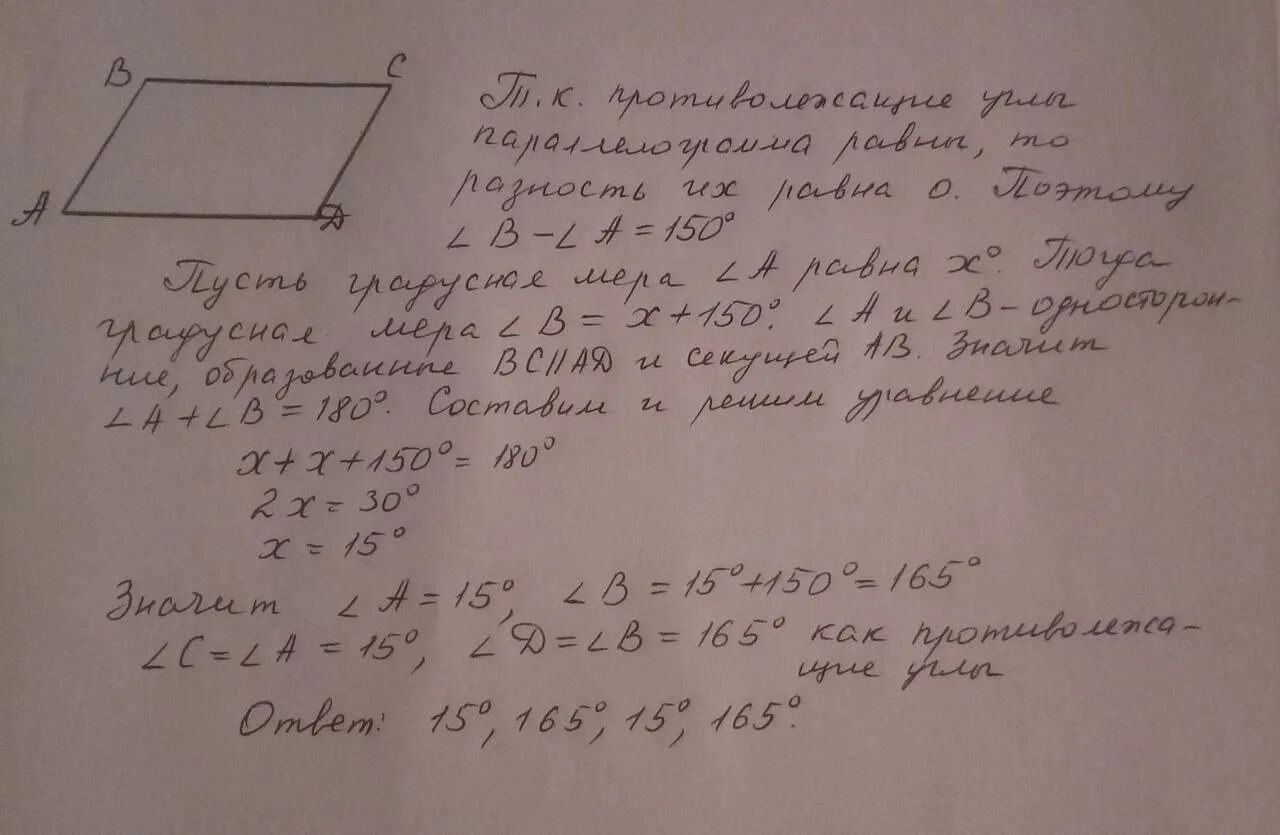 B
C
A
D
Т.к. противолежащие углы
параллелограмма равны, то
разность их равна 0. Поэтому
∠B-∠A=150°
Пусть градусная мера ∠A равна x°. Тогда
градусная мера ∠B = x+150°. ∠A и ∠B - односторон-
ние, образованные BC||AD и секущей AB. Значит
∠A+∠B=180°. Составим и решим уравнение
x+x+150°=180°
2x=30°
x=15°
Значит ∠A=15°, ∠B=15°+150°=165°
∠C=∠A=15°, ∠D=∠B=165° как противолежа-
щие углы
Ответ: 15°, 165°, 15°, 165°.